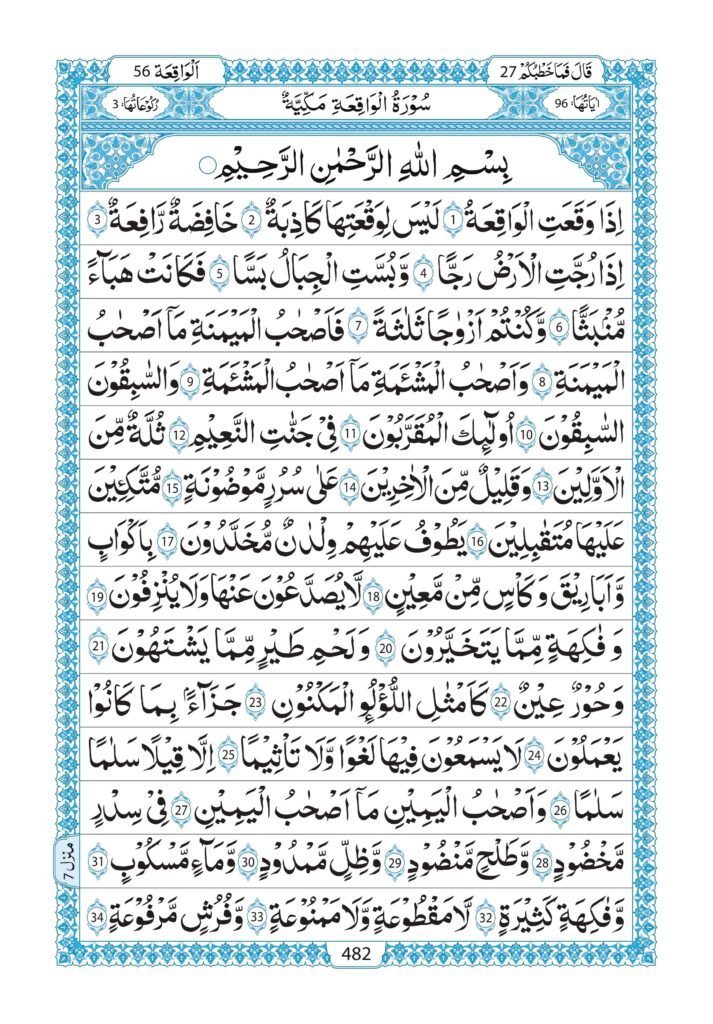 قَالَ فَمَا خَطْبُكُمْ 27
اَلْوَاقِعَة 56
اٰيَاتُهَا: 96
سُوْرَةُ الْوَاقِعَةِ مَكِّيَّةٌ
رُكُوْعَاتُهَا: 3
بِسْمِ اللّٰهِ الرَّحْمٰنِ الرَّحِيْمِ
اِذَا وَقَعَتِ الْوَاقِعَةُ 1 لَيْسَ لِوَقْعَتِهَا كَاذِبَةٌ 2 خَافِضَةٌ رَّافِعَةٌ 3
اِذَا رُجَّتِ الْاَرْضُ رَجًّا 4 وَّبُسَّتِ الْجِبَالُ بَسًّا 5 فَكَانَتْ هَبَآءً
مُّنْۢبَثًّا 6 وَّكُنْتُمْ اَزْوَاجًا ثَلٰثَةً 7 فَاَصْحٰبُ الْمَيْمَنَةِ مَاۤ اَصْحٰبُ
الْمَيْمَنَةِ 8 وَاَصْحٰبُ الْمَشْـَٔمَةِ مَاۤ اَصْحٰبُ الْمَشْـَٔمَةِ 9 وَالسّٰبِقُوْنَ
السّٰبِقُوْنَ 10 اُولٰٓئِكَ الْمُقَرَّبُوْنَ 11 فِيْ جَنّٰتِ النَّعِيْمِ 12 ثُلَّةٌ مِّنَ
الْاَوَّلِيْنَ 13 وَقَلِيْلٌ مِّنَ الْاٰخِرِيْنَ 14 عَلٰى سُرُرٍ مَّوْضُوْنَةٍ 15 مُّتَّكِـِٕيْنَ
عَلَيْهَا مُتَقٰبِلِيْنَ 16 يَطُوْفُ عَلَيْهِمْ وِلْدَانٌ مُّخَلَّدُوْنَ 17 بِاَكْوَابٍ
وَّاَبَارِيْقَ وَكَاْسٍ مِّنْ مَّعِيْنٍ 18 لَّا يُصَدَّعُوْنَ عَنْهَا وَلَا يُنْزِفُوْنَ 19
وَفَاكِهَةٍ مِّمَّا يَتَخَيَّرُوْنَ 20 وَلَحْمِ طَيْرٍ مِّمَّا يَشْتَهُوْنَ 21
وَحُوْرٌ عِيْنٌ 22 كَاَمْثَالِ اللُّؤْلُؤِ الْمَكْنُوْنِ 23 جَزَآءًۢ بِمَا كَانُوْا
يَعْمَلُوْنَ 24 لَا يَسْمَعُوْنَ فِيْهَا لَغْوًا وَّلَا تَاْثِيْمًا 25 اِلَّا قِيْلًا سَلٰمًا
سَلٰمًا 26 وَاَصْحٰبُ الْيَمِيْنِ مَاۤ اَصْحٰبُ الْيَمِيْنِ 27 فِيْ سِدْرٍ
مَّخْضُوْدٍ 28 وَّطَلْحٍ مَّنْضُوْدٍ 29 وَّظِلٍّ مَّمْدُوْدٍ 30 وَّمَآءٍ مَّسْكُوْبٍ 31
وَّفَاكِهَةٍ كَثِيْرَةٍ 32 لَّا مَقْطُوْعَةٍ وَّلَا مَمْنُوْعَةٍ 33 وَّفُرُشٍ مَّرْفُوْعَةٍ 34
منزل 7
482